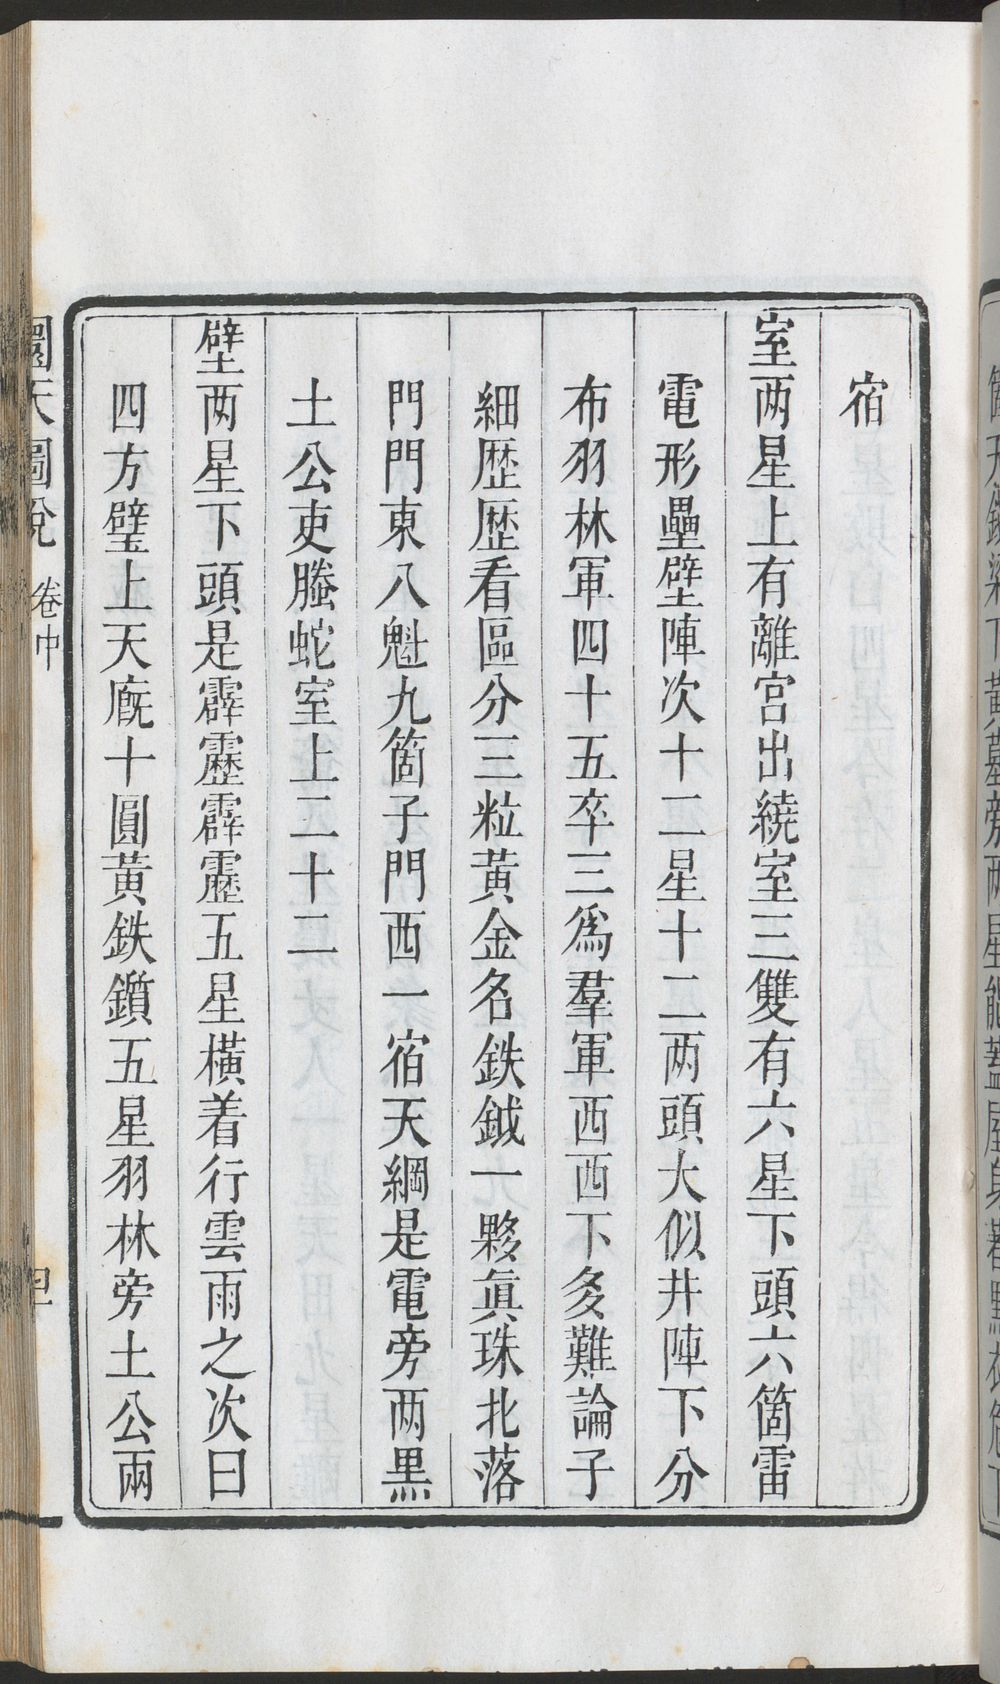 宿
室两星上有離宮出繞室三雙有六星下頭六箇雷
電形壘壁陣次十二星十二两頭大似井陣下分
布羽林軍四十五卒三爲羣軍西西下多難論子
細歷歷看區分三粒黃金名鉄鉞一夥眞珠北落
門門東八魁九箇子門西一宿天綱是電旁两黒
土公吏螣蛇室上二十二
壁两星下頭是霹靂霹靂五星橫着行雲雨之次曰
四方壁上天廐十圓黃鉄鑕五星羽林旁土公兩
圜天圖說
卷中